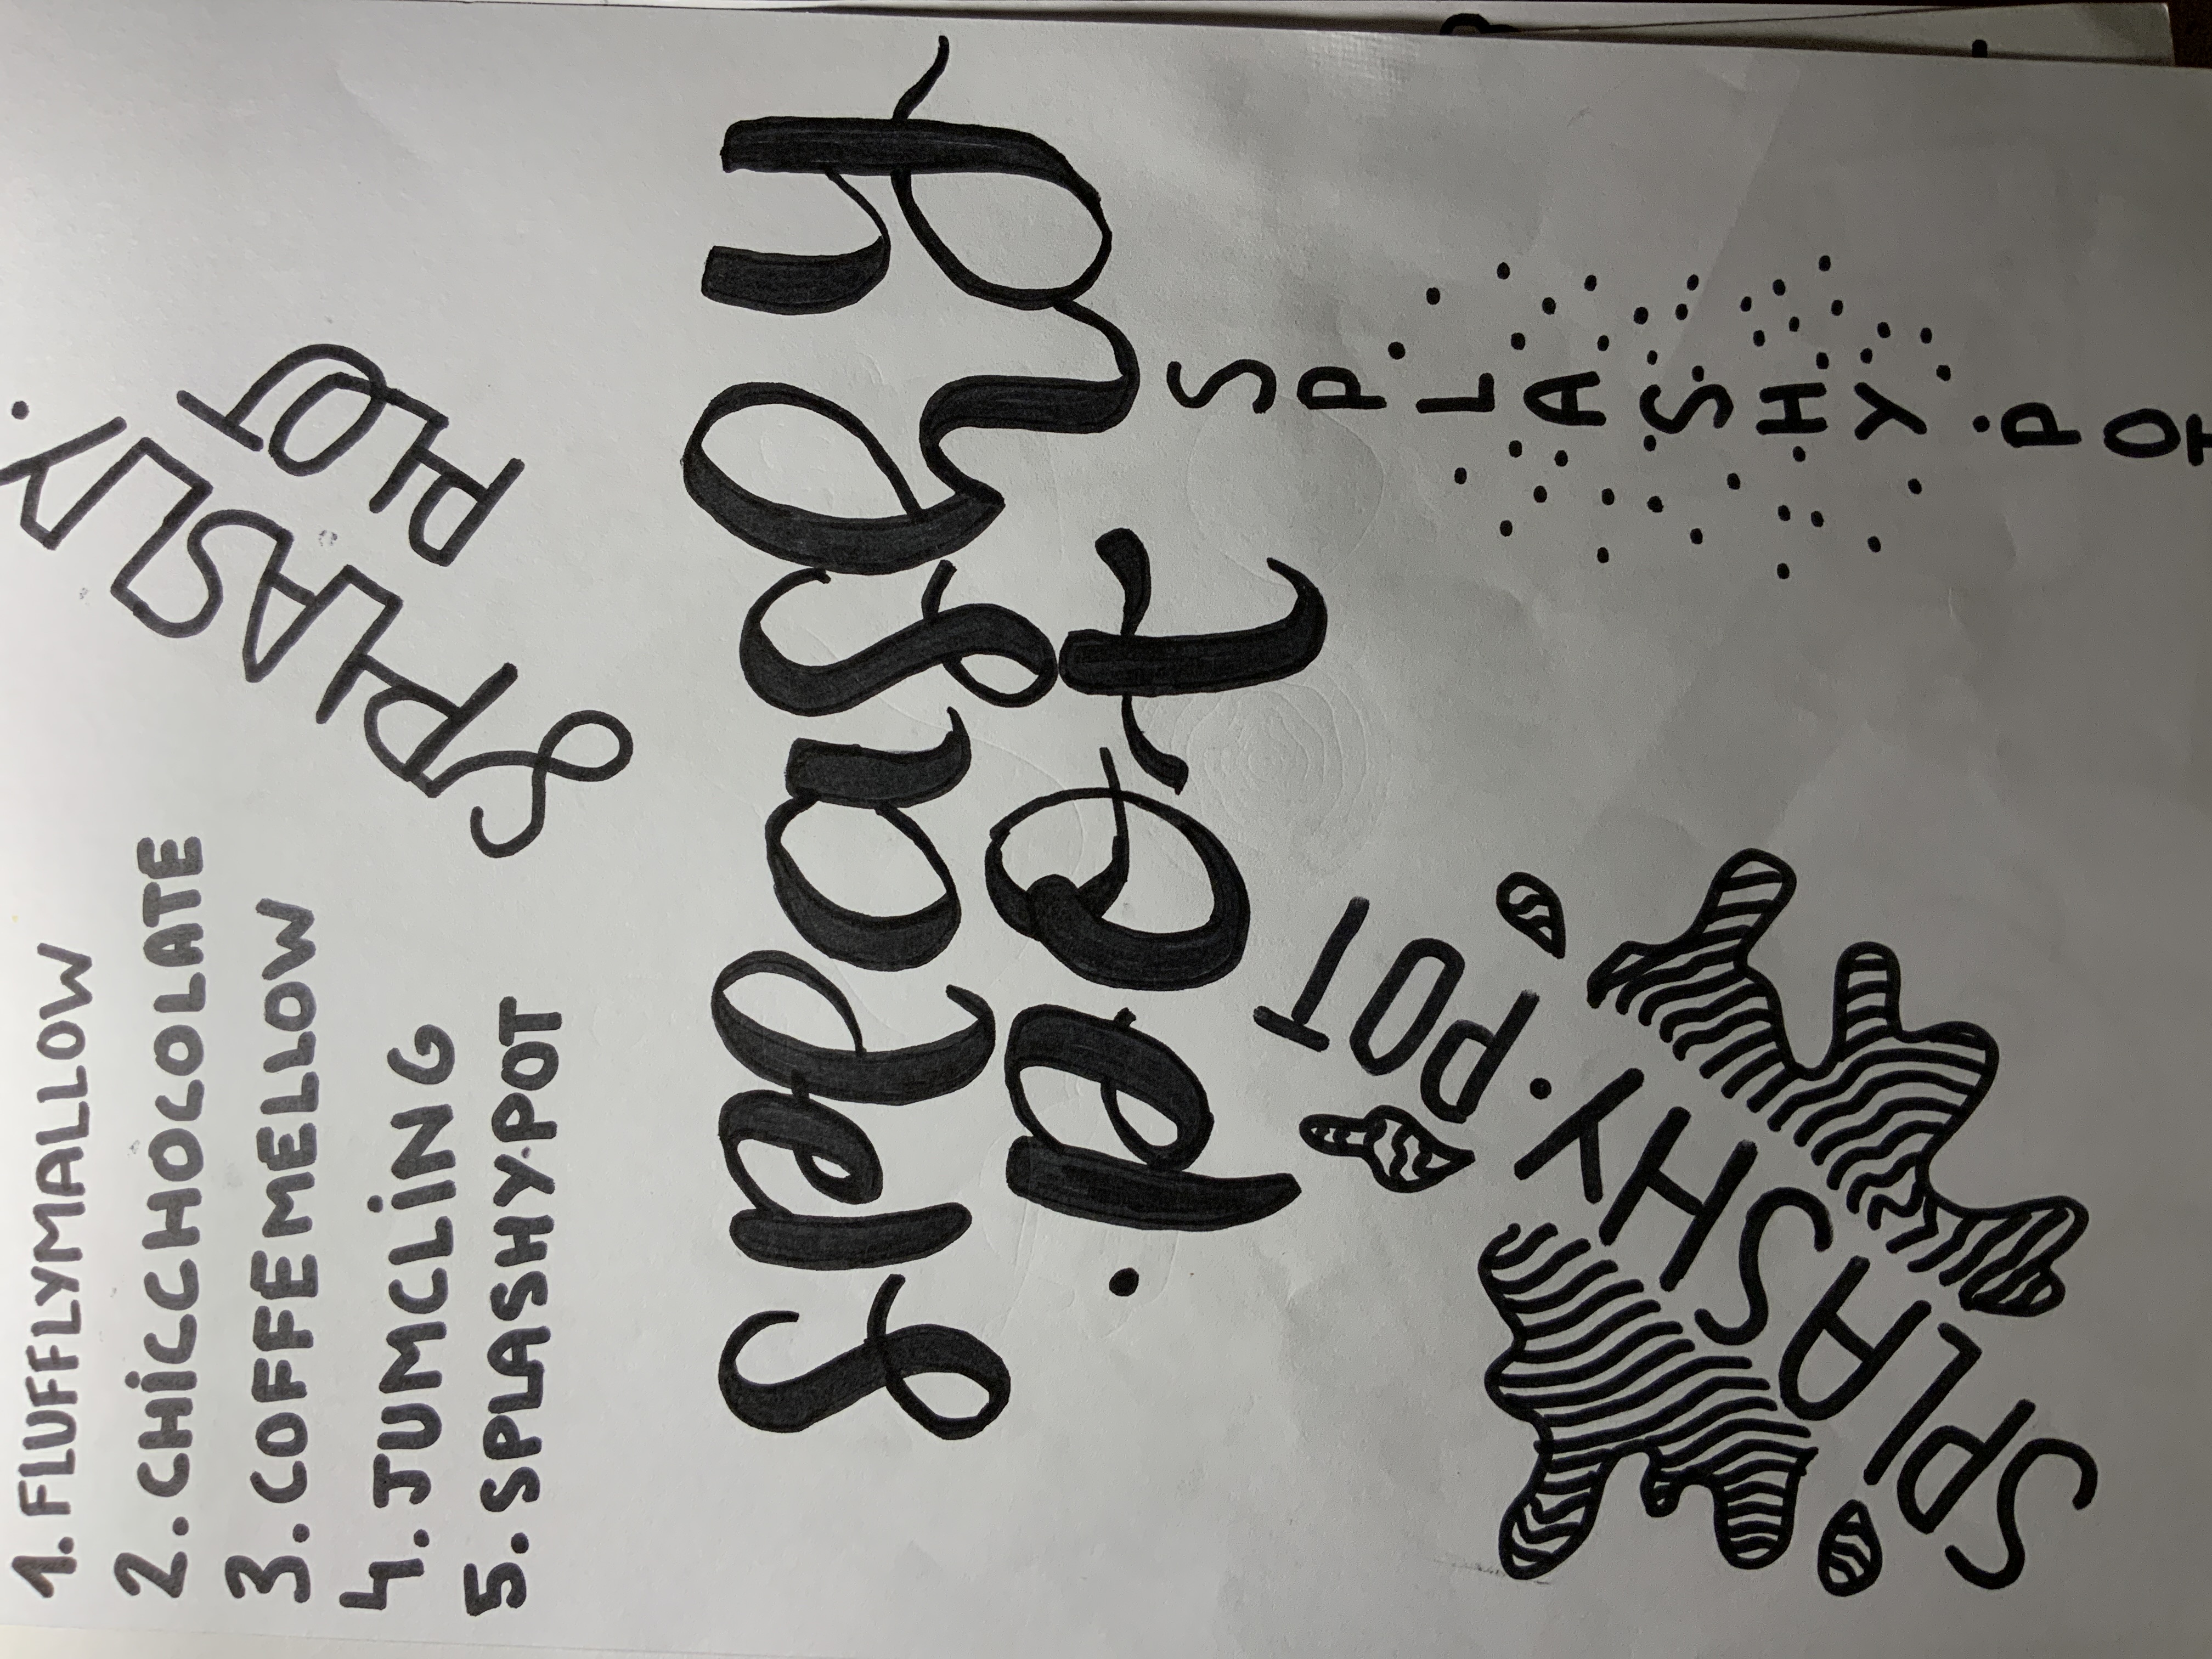 1. FLUFFLYMALLOW
2. CHiCCHOCOLATE
3. COFFEMELLOW
4. JUMCLiNG
5. SPLASHY.POT
SPLASLY.
PLOT
splashy
.pot
SPLASHY.POT
SPLASHY.POT